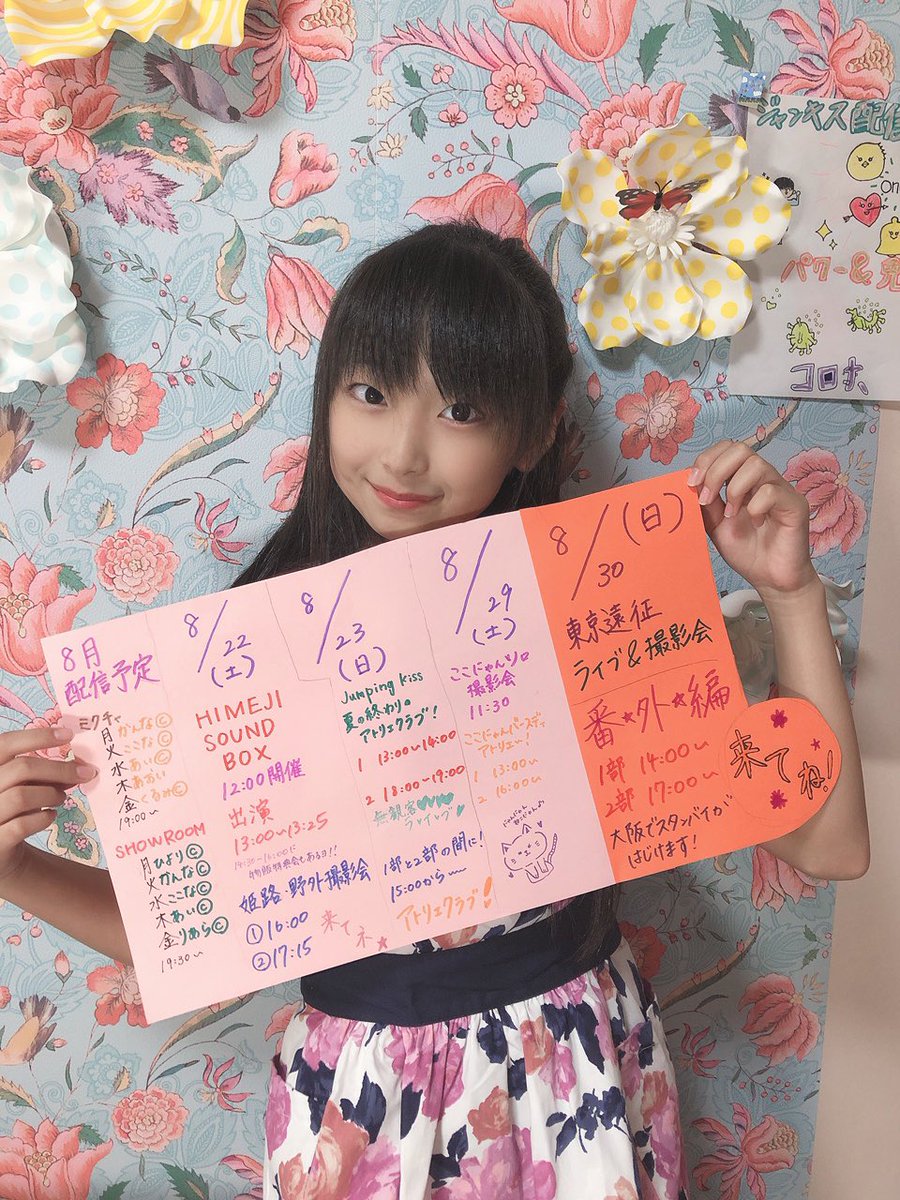 8月
配信予定
ミクチャ
月 かんな©
火 ここな©
水 あい©
木 あおい
金 くるみ©
19:00〜
SHOWROOM
月 ひより©
火 かんな©
水 ここな©
木 あい©
金 りあら©
19:30〜
8/22
(土)
HIMEJI
SOUND
BOX
12:00開催
出演
13:00〜13:25
14:30〜16:00に
物販特典会もあるヨ!!
姫路野外撮影会
①16:00
②17:15
来てネ
8/23
(日)
Jumping Kiss
夏の終わりの
アトリエクラブ!
1 13:00〜14:00
2 18:00〜19:00
無観客
1部と2部の間に!
15:00から〜
アトリエクラブ!
8/29
(土)
ここにゃんソロ
撮影会
11:30
ここにゃんバースデー
アトリエ!
1 13:00〜
2 16:00〜
8/30(日)
東京遠征
ライブ&撮影会
番★外★編
1部 14:00〜
2部 17:00〜
大阪でスタンバイが
はじけます!
来てね!
ジャンキス配信
on
パワー&免
コロナ、